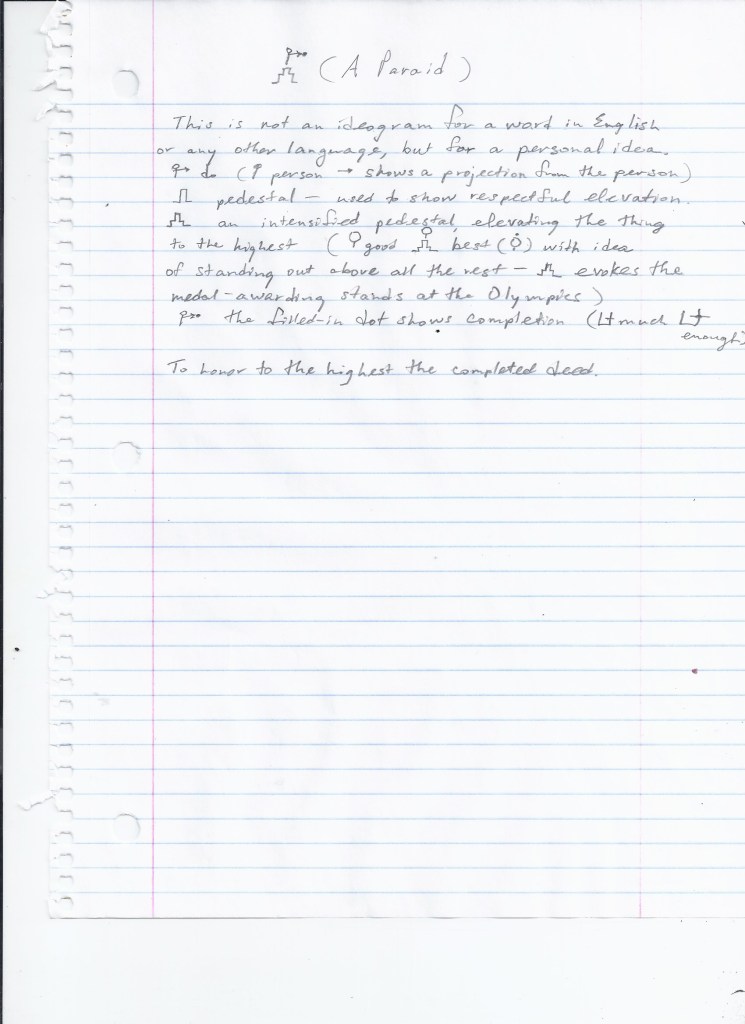 (A Paraid)
This is not an ideogram for a word in English
or any other language, but for a personal idea.
do ( person → shows a projection from the person)
pedestal — used to show respectful elevation.
an intensified pedestal, elevating the thing
to the highest ( good best ( ) with idea
of standing out above all the rest — evokes the
medal-awarding stands at the Olympics)
the filled-in dot shows completion ( much
enough)
To honor to the highest the completed deed.